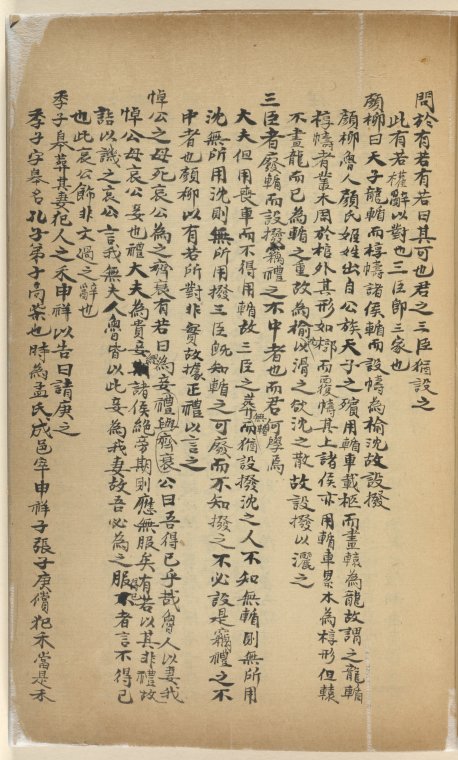 問於有若有若曰其可也君之三臣猶設之
此有若權辭以對也三臣卽三家也
顏柳曰天子龍輴而椁幬諸侯輴而設幬為榆沈故設撥
顏柳魯人顏氏姬姓出自公族天子之殯用輴車載柩而畫轅為龍故謂之龍輴
椁幬者叢木周於棺外其形如椁而覆幬其上諸侯亦用輴車累木為椁形但轅
不畫龍而已為輴之重故為榆以滑之欲沈之散故設撥以灑之
三臣者廢輴而設撥竊禮之不中者也而君何學焉
大夫但用喪車而不得用輴故三臣之葬無輴而猶設撥沈之人不知無輴則無所用
沈無所用沈則無所用撥三臣旣知輴之可廢而不知撥之不必設是竊禮之不
中者也顏柳以有若所對非實故據正禮以言之
悼公之母死哀公為之齊衰有若曰為妾禮與齊衰公曰吾得已乎哉魯人以妻我
悼公母哀公妾也禮大夫為貴妾緦諸侯絶旁期則應無服矣有若以其非禮故
詰以譏之哀公言我無夫人魯皆以此妾為我妻故吾必為之服不得已者言不得已
也此哀公飾非文過之辭也
季子皋葬其妻犯人之禾申祥以告曰請庚之
季子字皋名孔子弟子高柴也時為孟氏成邑宰申祥子張子庚償犯禾當是禾